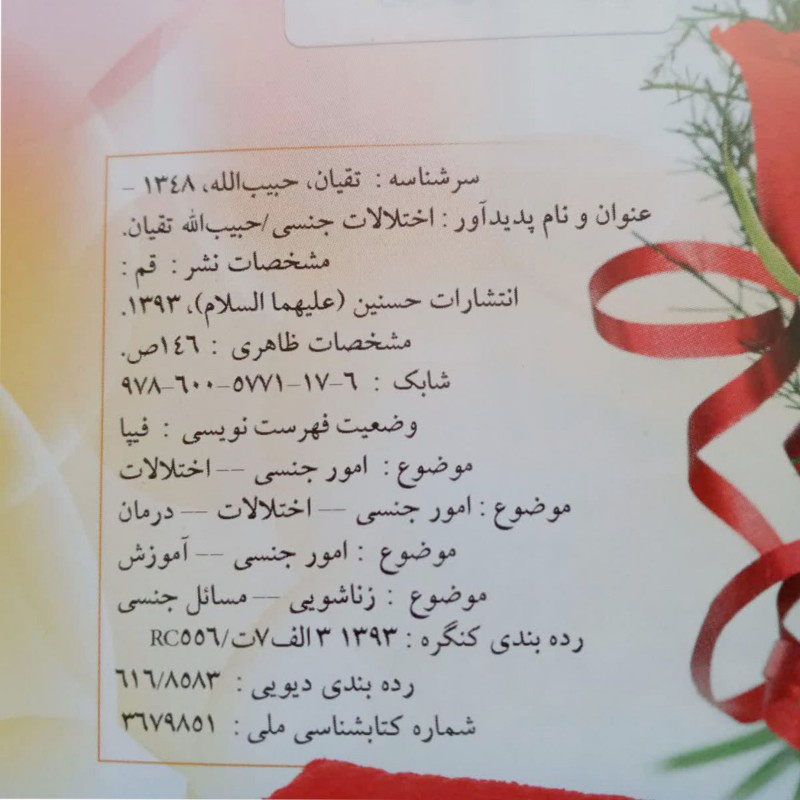 سرشناسه : تقیان، حبیب‌الله، ۱۳٤۸ –
عنوان و نام پدیدآور : اختلالات جنسی/حبیب‌الله تقیان.
مشخصات نشر : قم :
انتشارات حسنین (علیهما السلام)، ۱۳۹۳.
مشخصات ظاهری : ۱٤٦ص.
شابک : ۹۷۸-۶۰۰-۵۷۷۱-۱۷-۶
وضعیت فهرست نویسی : فیپا
موضوع : امور جنسی -- اختلالات
موضوع : امور جنسی -- اختلالات -- درمان
موضوع : امور جنسی -- آموزش
موضوع : زناشویی -- مسائل جنسی
رده بندی کنگره : ۱۳۹۳ ۳الف۷ت/RC۵۵۶
رده بندی دیویی : ٦۱٦/۸۵۸۳
شماره کتابشناسی ملی : ۳٦۷۹۸۵۱